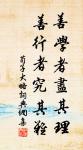 善學者盡其理
善行者究其難
荀子大略詞典網集